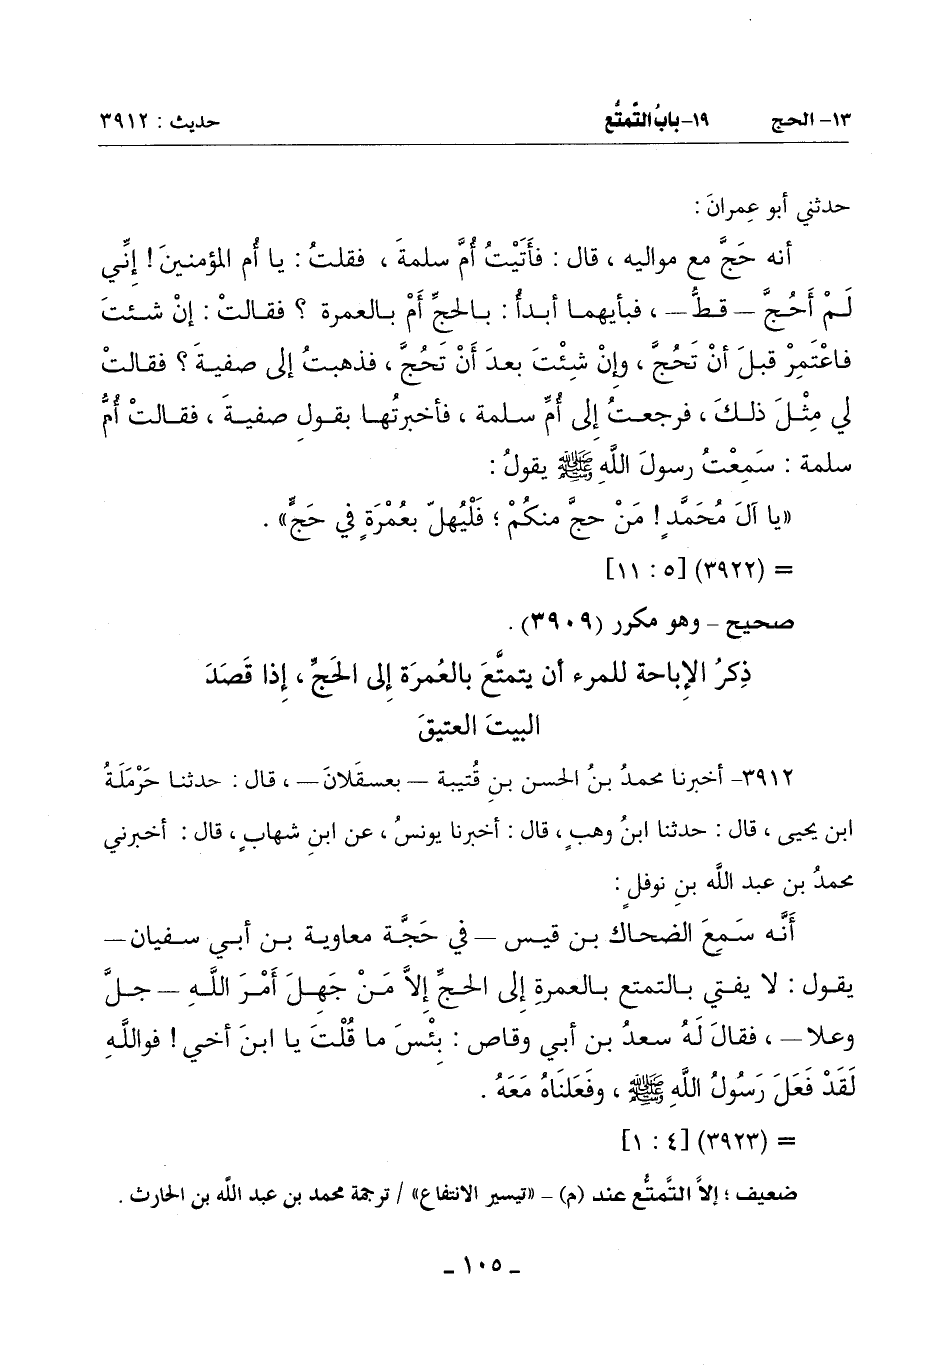 ١٣- الحج ١٩- بابُ التَّمتُّع حديث : ٣٩١٢
حدثني أبو عِمرانَ :
أنه حَجَّ مع مواليه ، قال : فأَتَيْتُ أُمَّ سلمةَ ، فقلتُ : يا أُم المؤمنينَ ! إنِّي
لَمْ أَحُجَّ – قطُّ – ، فبأيهما أبدأُ : بالحجِّ أَمْ بالعمرة ؟ فقالتْ : إنْ شئتَ
فاعْتَمِرْ قبلَ أنْ تَحُجَّ ، وإنْ شِئْتَ بعدَ أَنْ تَحُجَّ ، فذهبتُ إلى صفيةَ ؟ فقالتْ
لي مِثْلَ ذلكَ ، فرجعتُ إلى أُمِّ سلمة ، فأخبرتُها بقولِ صفيةَ ، فقالتْ أُمُّ
سلمة : سَمِعْتُ رسولَ اللَّهِ ﷺ يقولُ :
«يا آلَ مُحَمَّدٍ ! مَنْ حجَّ منكُمْ ؛ فَلْيُهلّ بعُمْرَةٍ في حَجٍّ» .
= (٣٩٢٢) [٥ : ١١]
صحيح – وهو مكرر (٣٩٠٩) .
ذِكرُ الإباحة للمرء أن يتمتَّعَ بالعُمرَة إلى الحَجِّ ، إذا قَصَدَ
البيتَ العتيقَ
٣٩١٢- أخبرنا محمدُ بنُ الحسن بنِ قُتيبة – بعسقَلانَ – ، قال : حدثنا حَرْمَلَةُ
ابن يحيى ، قال : حدثنا ابنُ وهبٍ ، قال : أخبرنا يونسُ ، عن ابنِ شهابٍ ، قال : أخبرني
محمدُ بن عبد اللَّه بنِ نوفلٍ :
أنَّه سَمِعَ الضحاك بن قيس – في حَجَّة معاوية بن أبي سفيان –
يقول : لا يفتي بالتمتع بالعمرةِ إلى الحجِّ إلاَّ مَنْ جَهِلَ أَمْرَ اللَّهِ – جلَّ
وعلا – ، فقالَ لَهُ سعدُ بن أبي وقاص : بِئْسَ ما قُلْتَ يا ابنَ أخي ! فواللَّهِ
لَقَدْ فَعَلَ رَسُولُ اللَّهِ ﷺ ، وفَعَلنَاهُ مَعَهُ .
= (٣٩٢٣) [٤ : ١]
ضعيف ؛ إلاَّ التَّمتُّع عند (م) – «تيسير الانتفاع» / ترجمة محمد بن عبد اللَّه بن الحارث .
– ١٠٥ –